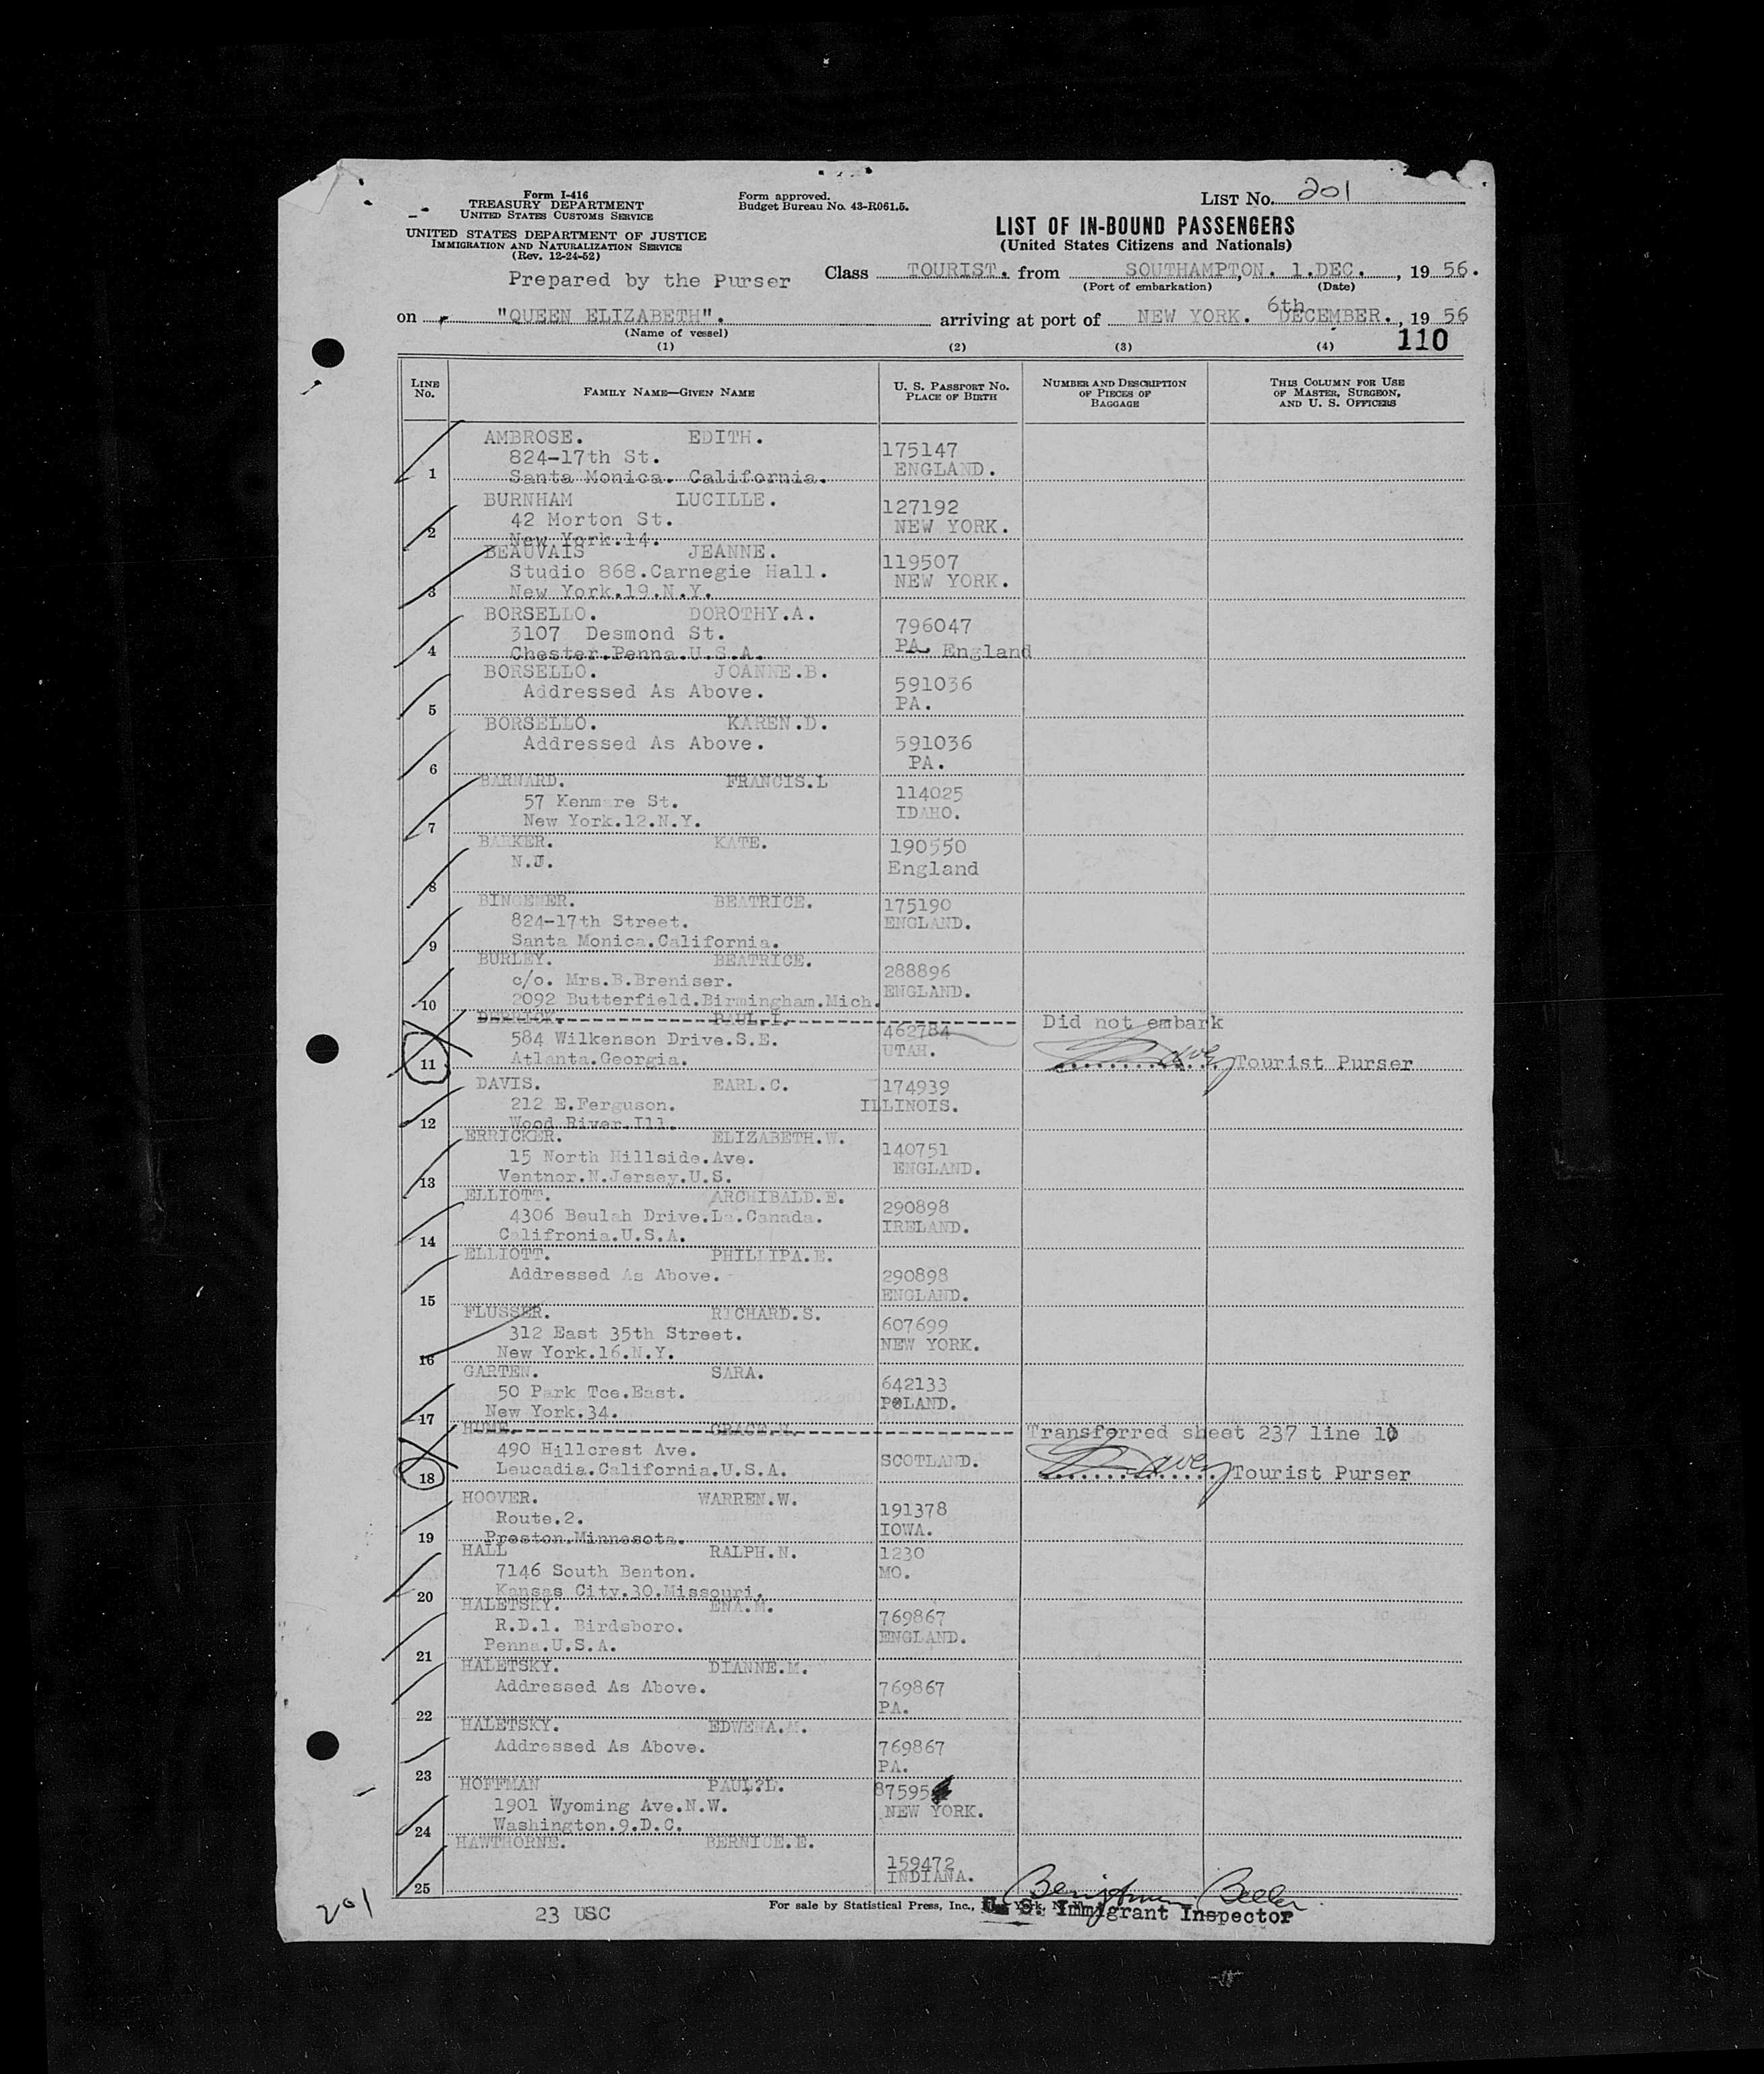 Form I-416
TREASURY DEPARTMENT
UNITED STATES CUSTOMS SERVICE
UNITED STATES DEPARTMENT OF JUSTICE
IMMIGRATION AND NATURALIZATION SERVICE
(Rev. 12-24-52)
Form approved.
Budget Bureau No. 43-R061.5.
LIST No. 201
LIST OF IN-BOUND PASSENGERS
(United States Citizens and Nationals)
Prepared by the Purser
Class TOURIST. from SOUTHAMPTON. 1.DEC., 19 56.
(Port of embarkation) (Date)
on "QUEEN ELIZABETH". arriving at port of NEW YORK. 6th DECEMBER., 19 56
(Name of vessel)
110
(1) (2) (3) (4)
LINE No. FAMILY NAME—GIVEN NAME U. S. PASSPORT No. PLACE OF BIRTH NUMBER AND DESCRIPTION OF PIECES OF BAGGAGE THIS COLUMN FOR USE OF MASTER, SURGEON, AND U. S. OFFICERS
AMBROSE. EDITH.
824-17th St. 175147
1 Santa Monica. California. ENGLAND.
BURNHAM LUCILLE.
42 Morton St. 127192
2 New York.14. NEW YORK.
BEAUVAIS JEANNE.
Studio 868.Carnegie Hall. 119507
3 New York.19.N.Y. NEW YORK.
BORSELLO. DOROTHY.A.
3107 Desmond St. 796047
4 Chester.Penna.U.S.A. PA. England
BORSELLO. JOANNE.B.
Addressed As Above. 591036
5 PA.
BORSELLO. KAREN.D.
Addressed As Above. 591036
6 PA.
BARNARD. FRANCIS.L
57 Kenmare St. 114025
7 New York.12.N.Y. IDAHO.
BARKER. KATE. 190550
8 N.J. England
BEATRICE. 175190
824-17th Street. ENGLAND.
9 Santa Monica.California.
BURLEY. BEATRICE.
c/o. Mrs.B.Breniser. 288896
10 2092 Butterfield.Birmingham.Mich. ENGLAND.
DERRICK. PAUL.I. Did not embark
584 Wilkenson Drive.S.E. 462784
11 Atlanta.Georgia. UTAH. Tourist Purser
DAVIS. EARL.C. 174939
212 E.Ferguson. ILLINOIS.
12 Wood River.Ill.
ERRICKER. ELIZABETH.W.
15 North Hillside.Ave. 140751
13 Ventnor.N.Jersey.U.S. ENGLAND.
ELLIOTT. ARCHIBALD.E.
4306 Beulah Drive.La.Canada. 290898
14 Califronia.U.S.A. IRELAND.
ELLIOTT. PHILLIPA.E.
Addressed As Above. 290898
15 ENGLAND.
FLUSSER. RICHARD.S.
312 East 35th Street. 607699
16 New York.16.N.Y. NEW YORK.
GARTEN. SARA.
50 Park Tce.East. 642133
17 New York.34. POLAND.
HUME. GRACE.N. Transferred sheet 237 line 10
490 Hillcrest Ave.
18 Leucadia.California.U.S.A. SCOTLAND. Tourist Purser
HOOVER. WARREN.W.
Route.2. 191378
19 Preston.Minnesota. IOWA.
HALL RALPH.N. 1230
7146 South Benton. MO.
20 Kansas City.30.Missouri.
HALETSKY. ENA.M.
R.D.1. Birdsboro. 769867
21 Penna.U.S.A. ENGLAND.
HALETSKY. DIANNE.M.
Addressed As Above. 769867
22 PA.
HALETSKY. EDWENA.M.
Addressed As Above. 769867
23 PA.
HOFFMAN PAUL.L. 87595
1901 Wyoming Ave.N.W. NEW YORK.
24 Washington.9.D.C.
HAWTHORNE. BERNICE.E.
159472
25 INDIANA.
201
23 USC
For sale by Statistical Press, Inc.,
Benjamin Beller
U. S. Immigrant Inspector